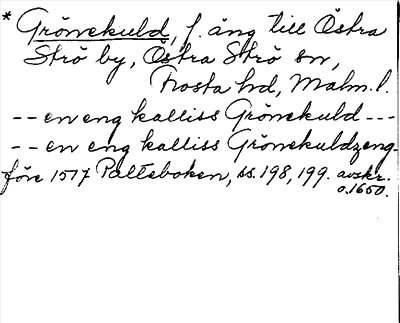 * Grönekuld, f. äng till Östra
Strö by, Östra Strö sn,
Frosta hd, Malm. l.
-- en eng kalliss Grönekuld ---
-- en eng kalliss Grönekuldzeng-
före 1517 Palteboken, ss. 198, 199. avskr.
o. 1650.